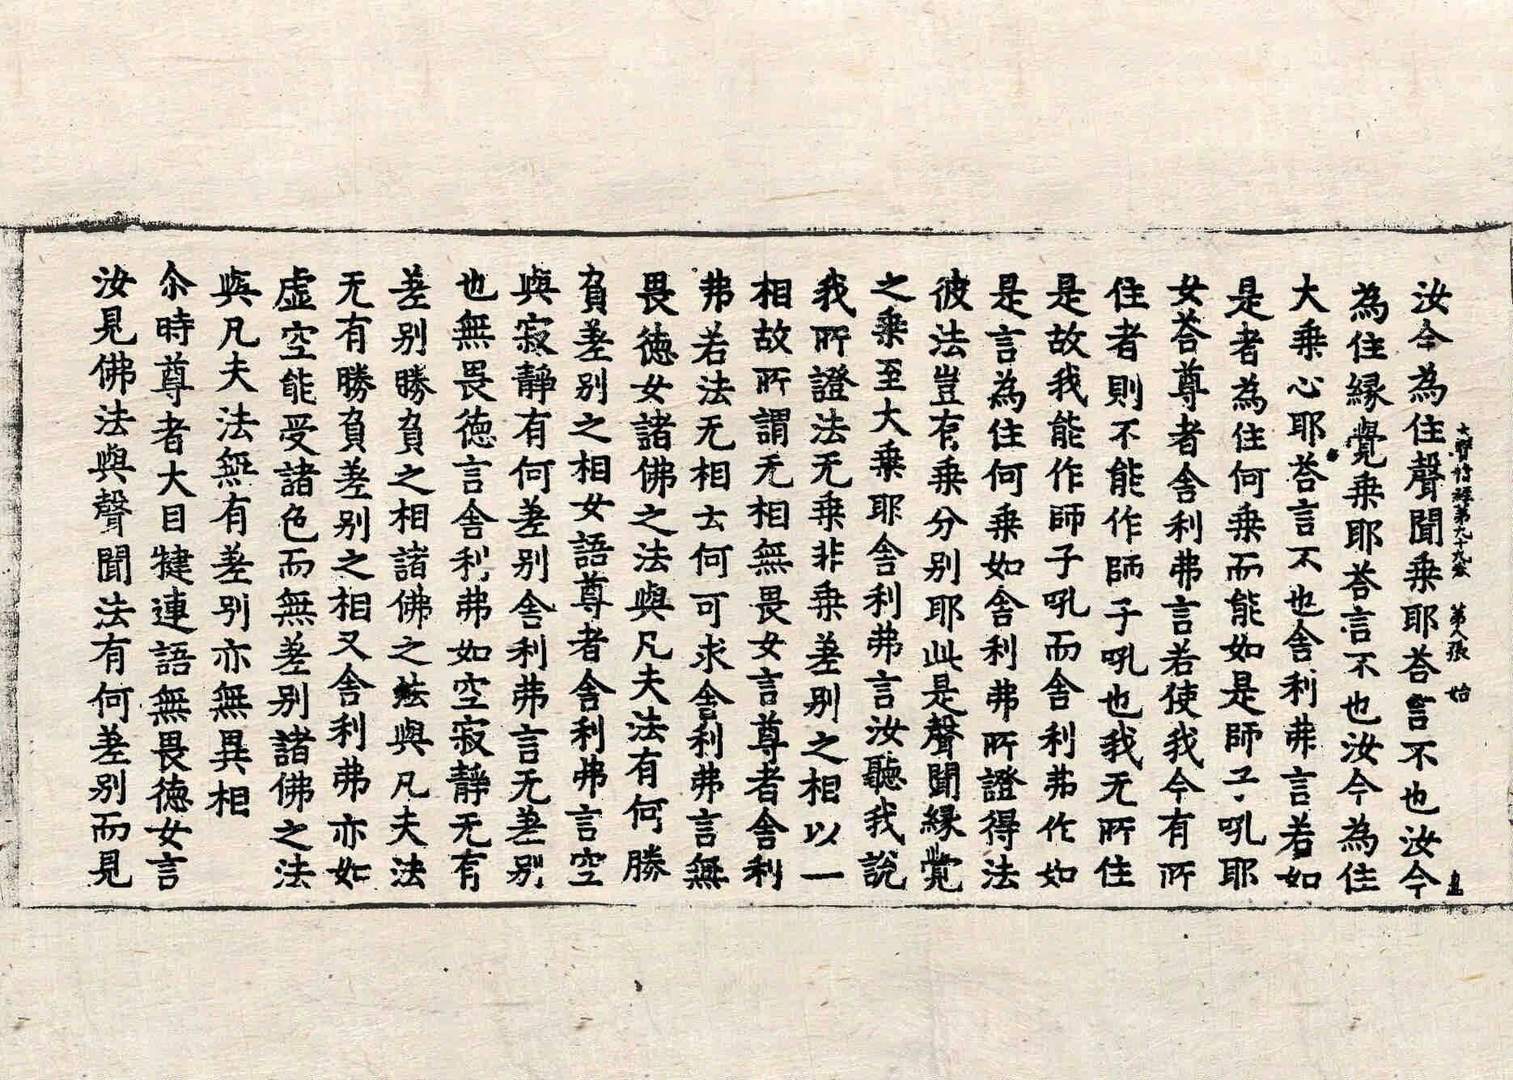 大寶積經第九十九卷 第八張 始
汝今為住聲聞乗耶荅言不也汝今
為住縁覺乗耶荅言不也汝今為住
大乗心耶荅言不也舍利弗言若如
是者為住何乗而能如是師子吼耶
女荅尊者舍利弗言若使我今有所
住者則不能作師子吼也我无所住
是故我能作師子吼而舍利弗作如
是言為住何乗如舍利弗所證得法
彼法豈有乗分别耶此是聲聞縁覺
之乗至大乗耶舍利弗言汝聽我說
我所證法无乗非乗差别之相以一
相故所謂无相無畏女言尊者舍利
弗若法无相云何可求舍利弗言無
畏徳女諸佛之法與凡夫法有何勝
負差别之相女語尊者舍利弗言空
與寂靜有何差别舍利弗言无差别
也無畏徳言舍利弗如空寂靜无有
差别勝負之相諸佛之法與凡夫法
无有勝負差别之相又舍利弗亦如
虚空能受諸色而無差别諸佛之法
與凡夫法無有差别亦無異相
尒時尊者大目犍連語無畏徳女言
汝見佛法與聲聞法有何差别而見